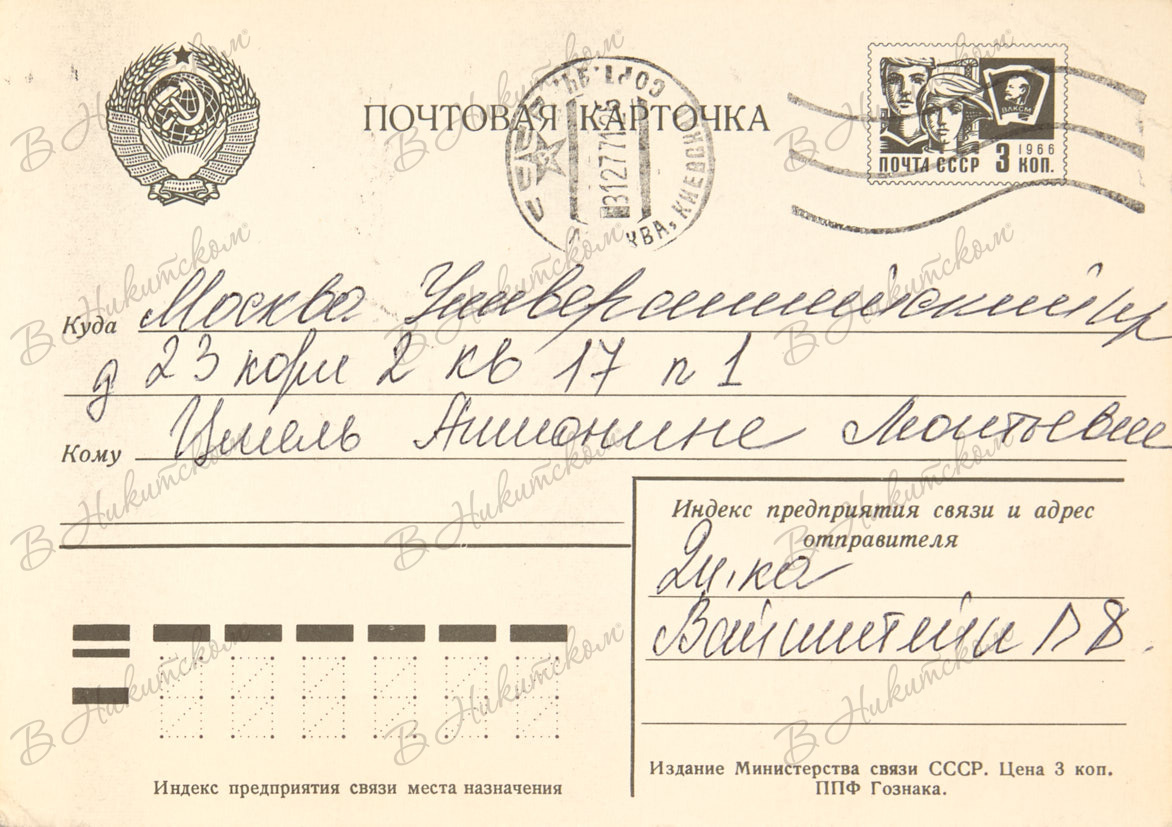 ПОЧТОВАЯ КАРТОЧКА
СОРТ.
31277
КВА, КИЕВСК
ВЛКСМ
1966
ПОЧТА СССР 3 КОП.
Куда Москва Университетский пр
д 23 корп 2 кв 17 п 1
Кому Цигель Антонине Леонтьевне
Индекс предприятия связи и адрес
отправителя
Вайнштейн
Индекс предприятия связи места назначения
Издание Министерства связи СССР. Цена 3 коп.
ППФ Гознака.
В Никитском